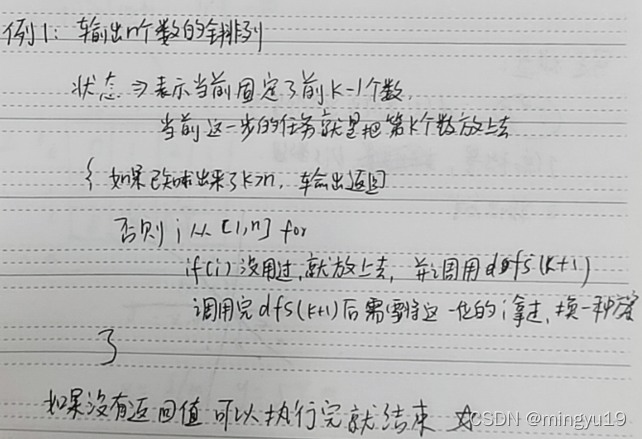 例1：输出n个数的全排列
状态 => 表示当前固定了前k-1个数，
当前这一步的任务就是把第k个数放上去
{ 如果已知求出来了k>n，输出返回
否则 i 从 [1,n] for
if(i) 没用过，就放上去，并调用dfs(k+1)
调用完dfs(k+1)后需要将这一位的i拿过，换一种
}
如果没有返回值 可以执行完就结束 ☆
CSDN @mingyu19